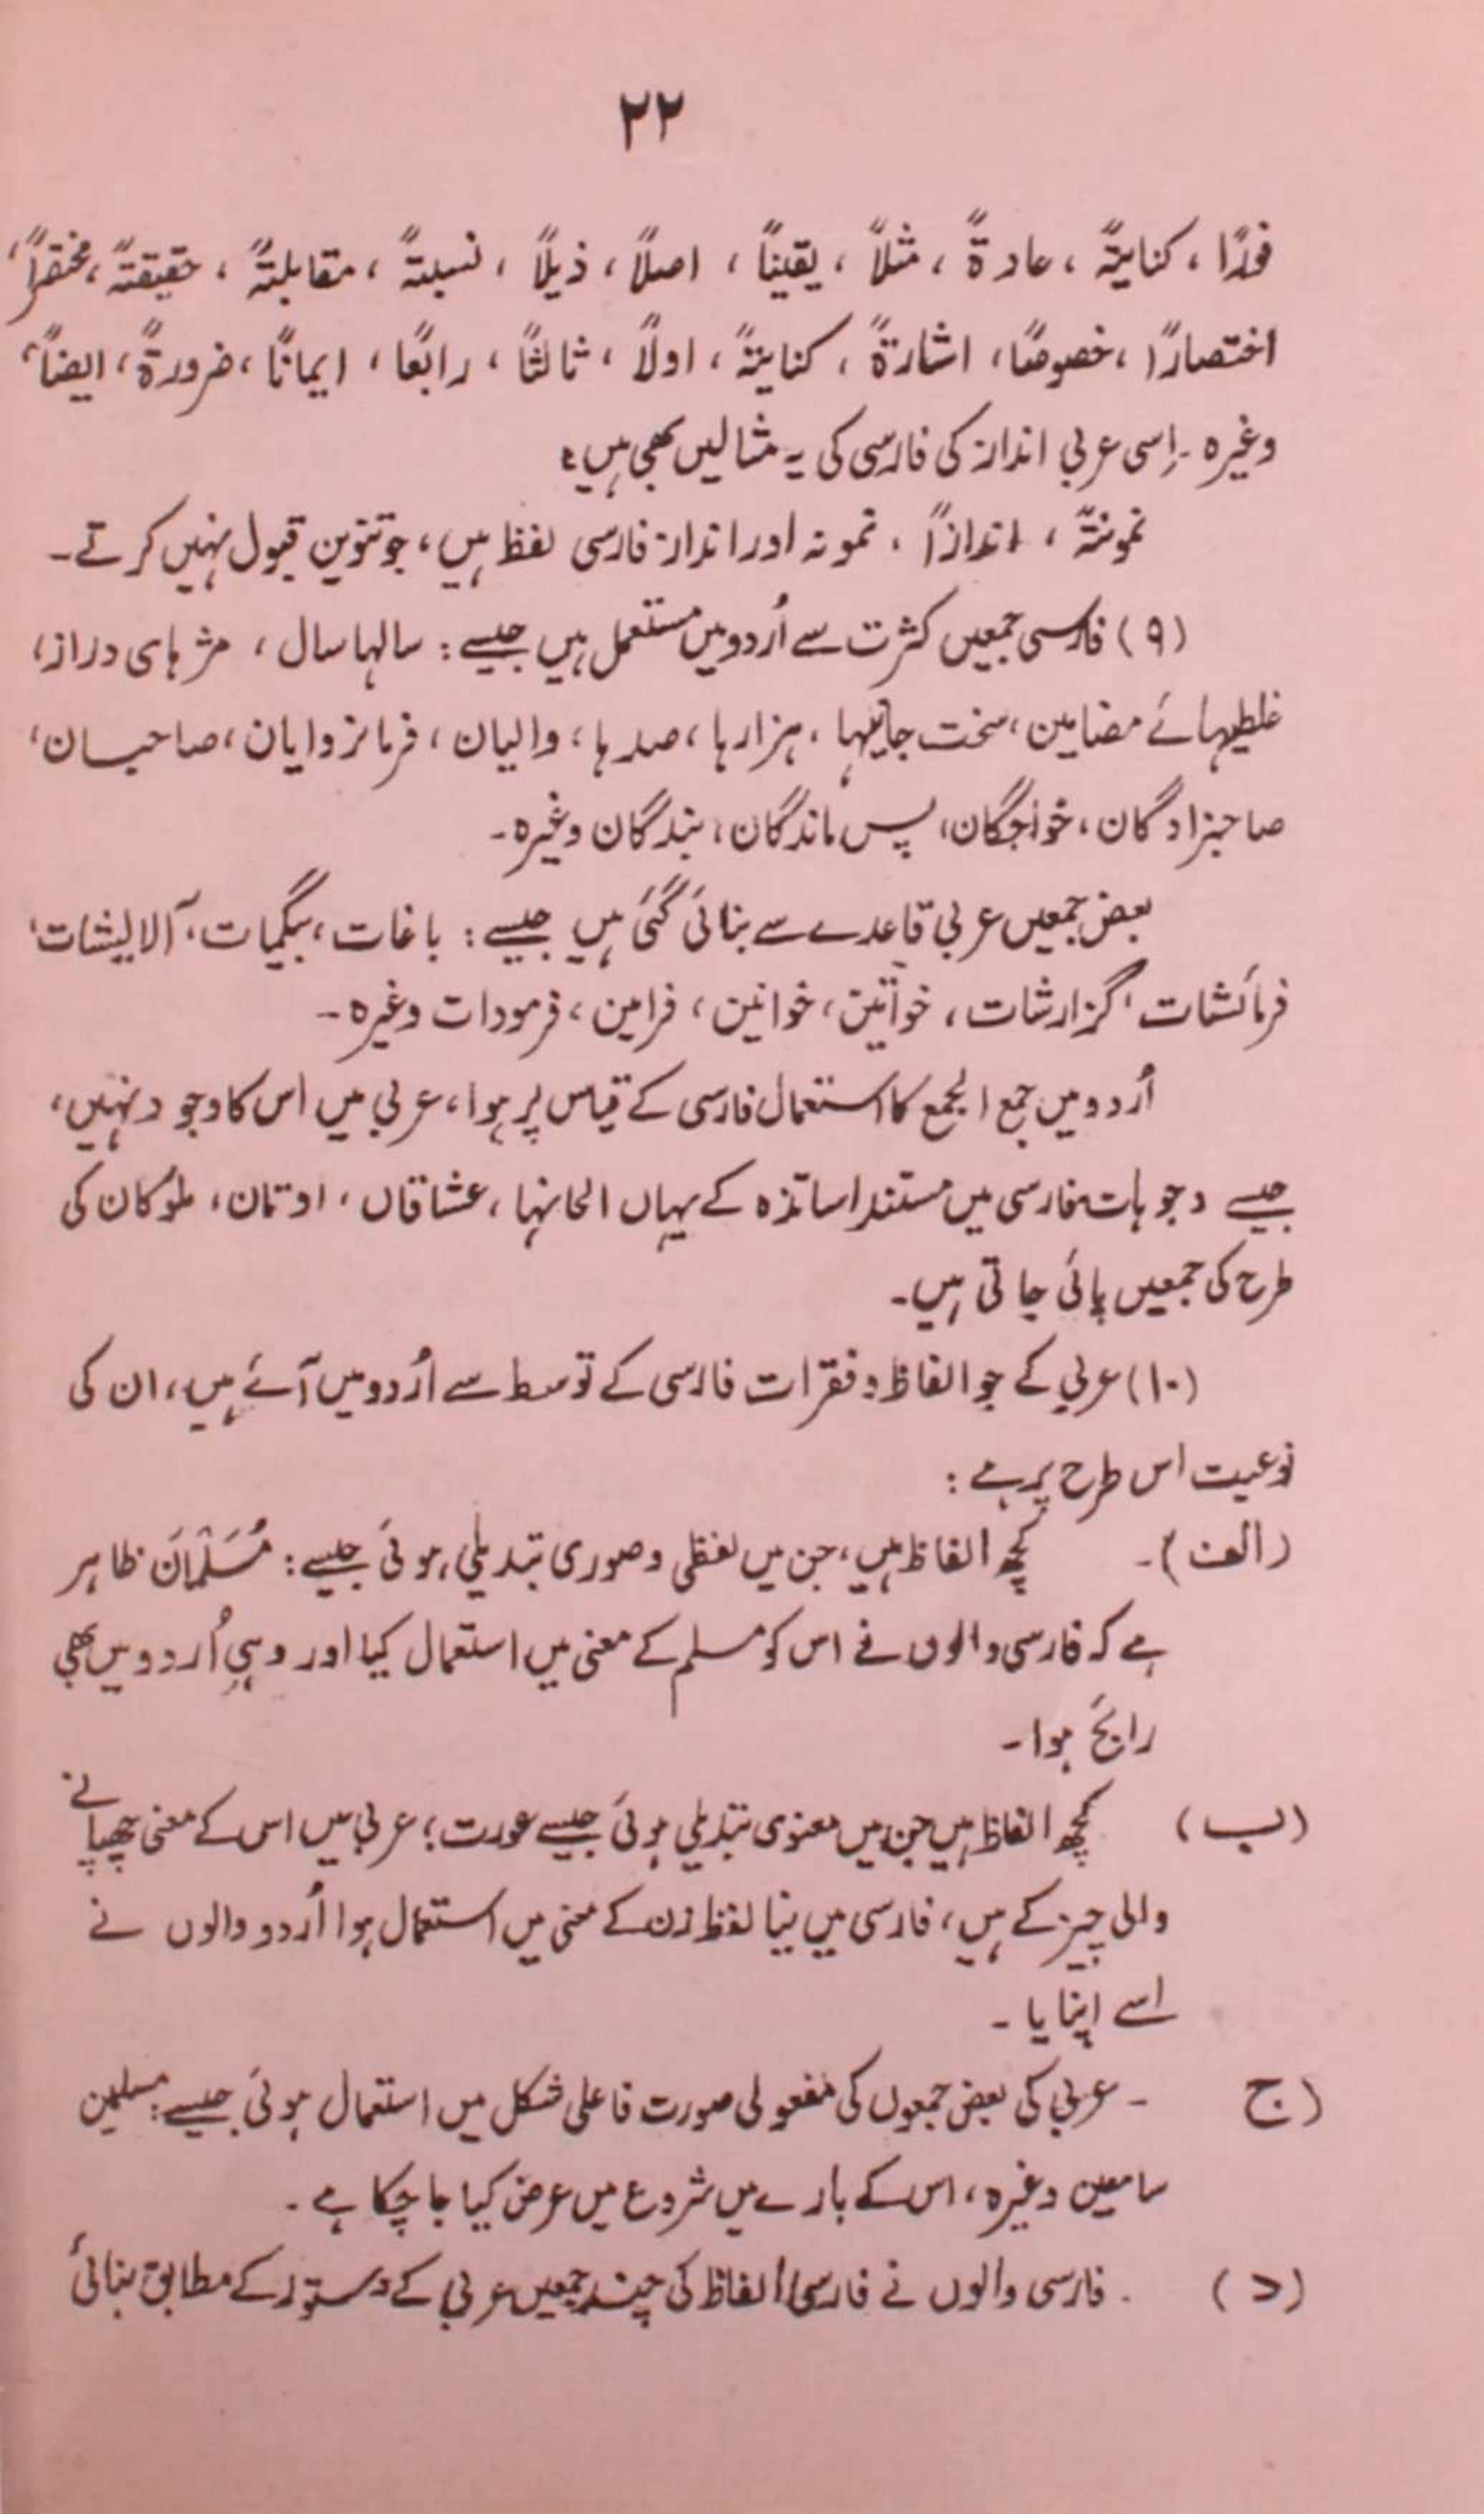 ۲۲
فوراً، کنایتہً، عادۃً، مثلاً، یقیناً، اصلاً، ذیلاً، نسبتہً، مقابلتہً، حقیقتہً، مختصراً،
اختصاراً، خصوصاً، اشارۃً، کنایتہً، اولاً، ثالثاً، رابعًا، ایمانًا، ضرورۃً، ایضاً،
وغیرہ۔ اِسی عربی انداز کی فارسی کی یہ مثالیں بھی ہیں:
نمونتہً، اندازاً، نمونہ اور انداز فارسی لفظ ہیں، جو تنوین قبول نہیں کرتے۔
(۹) فارسی جمعیں کثرت سے اُردو میں مستعمل ہیں جیسے: سالہا سال، مژہای دراز،
غلطیہائے مضامین، سخت جانیہا، ہزارہا، صدہا، والیان، فرمانروایان، صاحبان،
صاحبزادگان، خواجگان، پس ماندگان، بندگان وغیرہ۔
بعض جمعیں عربی قاعدے سے بنائی گئی ہیں جیسے: باغات، بیگمات، آلایشات،
فرمائشات، گزارشات، خواتین، خوانین، فرامین، فرمودات وغیرہ۔
اُردو میں جمع الجمع کا استعمال فارسی کے قیاس پر ہوا، عربی میں اس کا وجود نہیں،
جیسے وجوہات فارسی میں مستند اساتذہ کے یہاں الحانہا، عشاقاں، اوتان، ملوکان کی
طرح کی جمعیں پائی جاتی ہیں۔
(۱۰) عربی کے جو الفاظ و فقرات فارسی کے توسط سے اُردو میں آئے ہیں، ان کی
نوعیت اس طرح پر ہے:
(الف)۔ کچھ الفاظ ہیں، جن میں لفظی و صوری تبدیلی ہوئی جیسے: مُسَلْمَان ظاہر
ہے کہ فارسی والوں نے اس کو مسلم کے معنی میں استعمال کیا اور وہی اُردو میں بھی
رائج ہوا۔
(ب) کچھ الفاظ ہیں جن میں معنوی تبدیلی ہوئی جیسے عورت؛ عربی میں اس کے معنی چھپانے
والی چیز کے ہیں، فارسی میں نیا لفظ زن کے معنی میں استعمال ہوا اُردو والوں نے
اسے اپنایا۔
(ج ۔ عربی کی بعض جمعوں کی مفعولی صورت فاعلی شکل میں استعمال ہوئی جیسے: مسلمین
سامعین وغیرہ، اس کے بارے میں شروع میں عرض کیا جا چکا ہے۔
(د) ۔ فارسی والوں نے فارسی الفاظ کی چند جمعیں عربی کے دستور کے مطابق بنائی